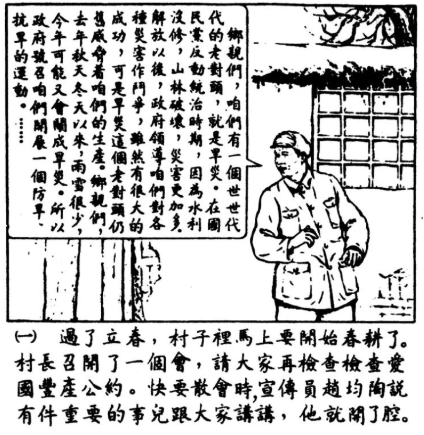 鄉親們，咱們有一個世世代
代的老對頭，就是旱災。在國
民黨反動統治時期，因為水利
沒修，山林破壞，災害更加多。
解放以後，政府領導咱們對各
種災害作鬥爭，雖然有很大的
成功，可是旱災這個老對頭仍
舊威脅着咱們的生產。鄉親們，
去年秋天冬天以來，雨雪很少，
今年可能又會鬧成旱災。所以
政府號召咱們開展一個防旱、
抗旱的運動。……
㈠ 過了立春，村子裡馬上要開始春耕了。
村長召開了一個會，請大家再檢查檢查愛
國豐產公約。快要散會時，宣傳員趙均陶説
有件重要的事兒跟大家講講，他就開了腔。